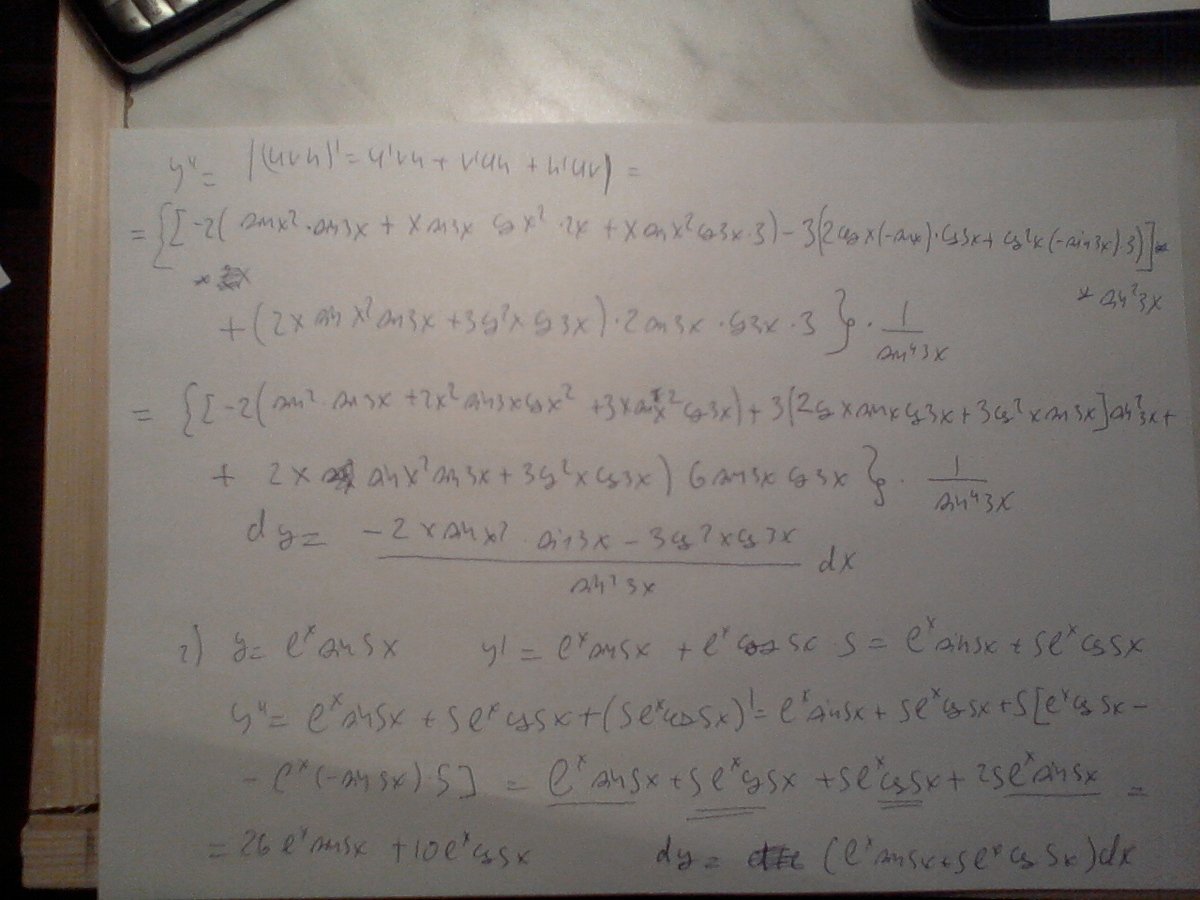 y'' = |(uvh)' = u'vh + v'uh + h'uv| =
= {[-2( sin x² · sin3x + x sin3x cos x² · 2x + x sin x² cos3x · 3) - 3(2cos x(-sin x) · cos3x + cos²x(-sin3x) · 3)] *
* sin²3x
+ (2x sin x² sin3x + 3cos²x cos3x) · 2 sin3x · cos3x · 3 } · 1/sin⁴3x
= {[-2(sin² · sin3x + 2x² sin3x cos x² + 3x sin x² cos3x) + 3(2cos x sin x cos3x + 3cos²x sin3x] sin²3x +
+ 2x sin x² sin3x + 3cos²x cos3x) 6 sin3x cos3x } · 1/sin⁴3x
dy = (-2x sin x² · sin3x - 3cos²x cos3x)/sin²3x dx
г) y = eˣ sin5x y' = eˣ sin5x + eˣ cos 5x · 5 = eˣ sin5x + 5eˣ cos5x
y'' = eˣ sin5x + 5eˣ cos5x + (5eˣ cos5x)' = eˣ sin5x + 5eˣ cos5x + 5[eˣ cos5x -
- eˣ(-sin5x) · 5] = eˣ sin5x + 5eˣ cos5x + 5eˣ cos5x + 25eˣ sin5x =
= 26 eˣ sin5x + 10eˣ cos5x dy = (eˣ sin5x + 5eˣ cos 5x)dx